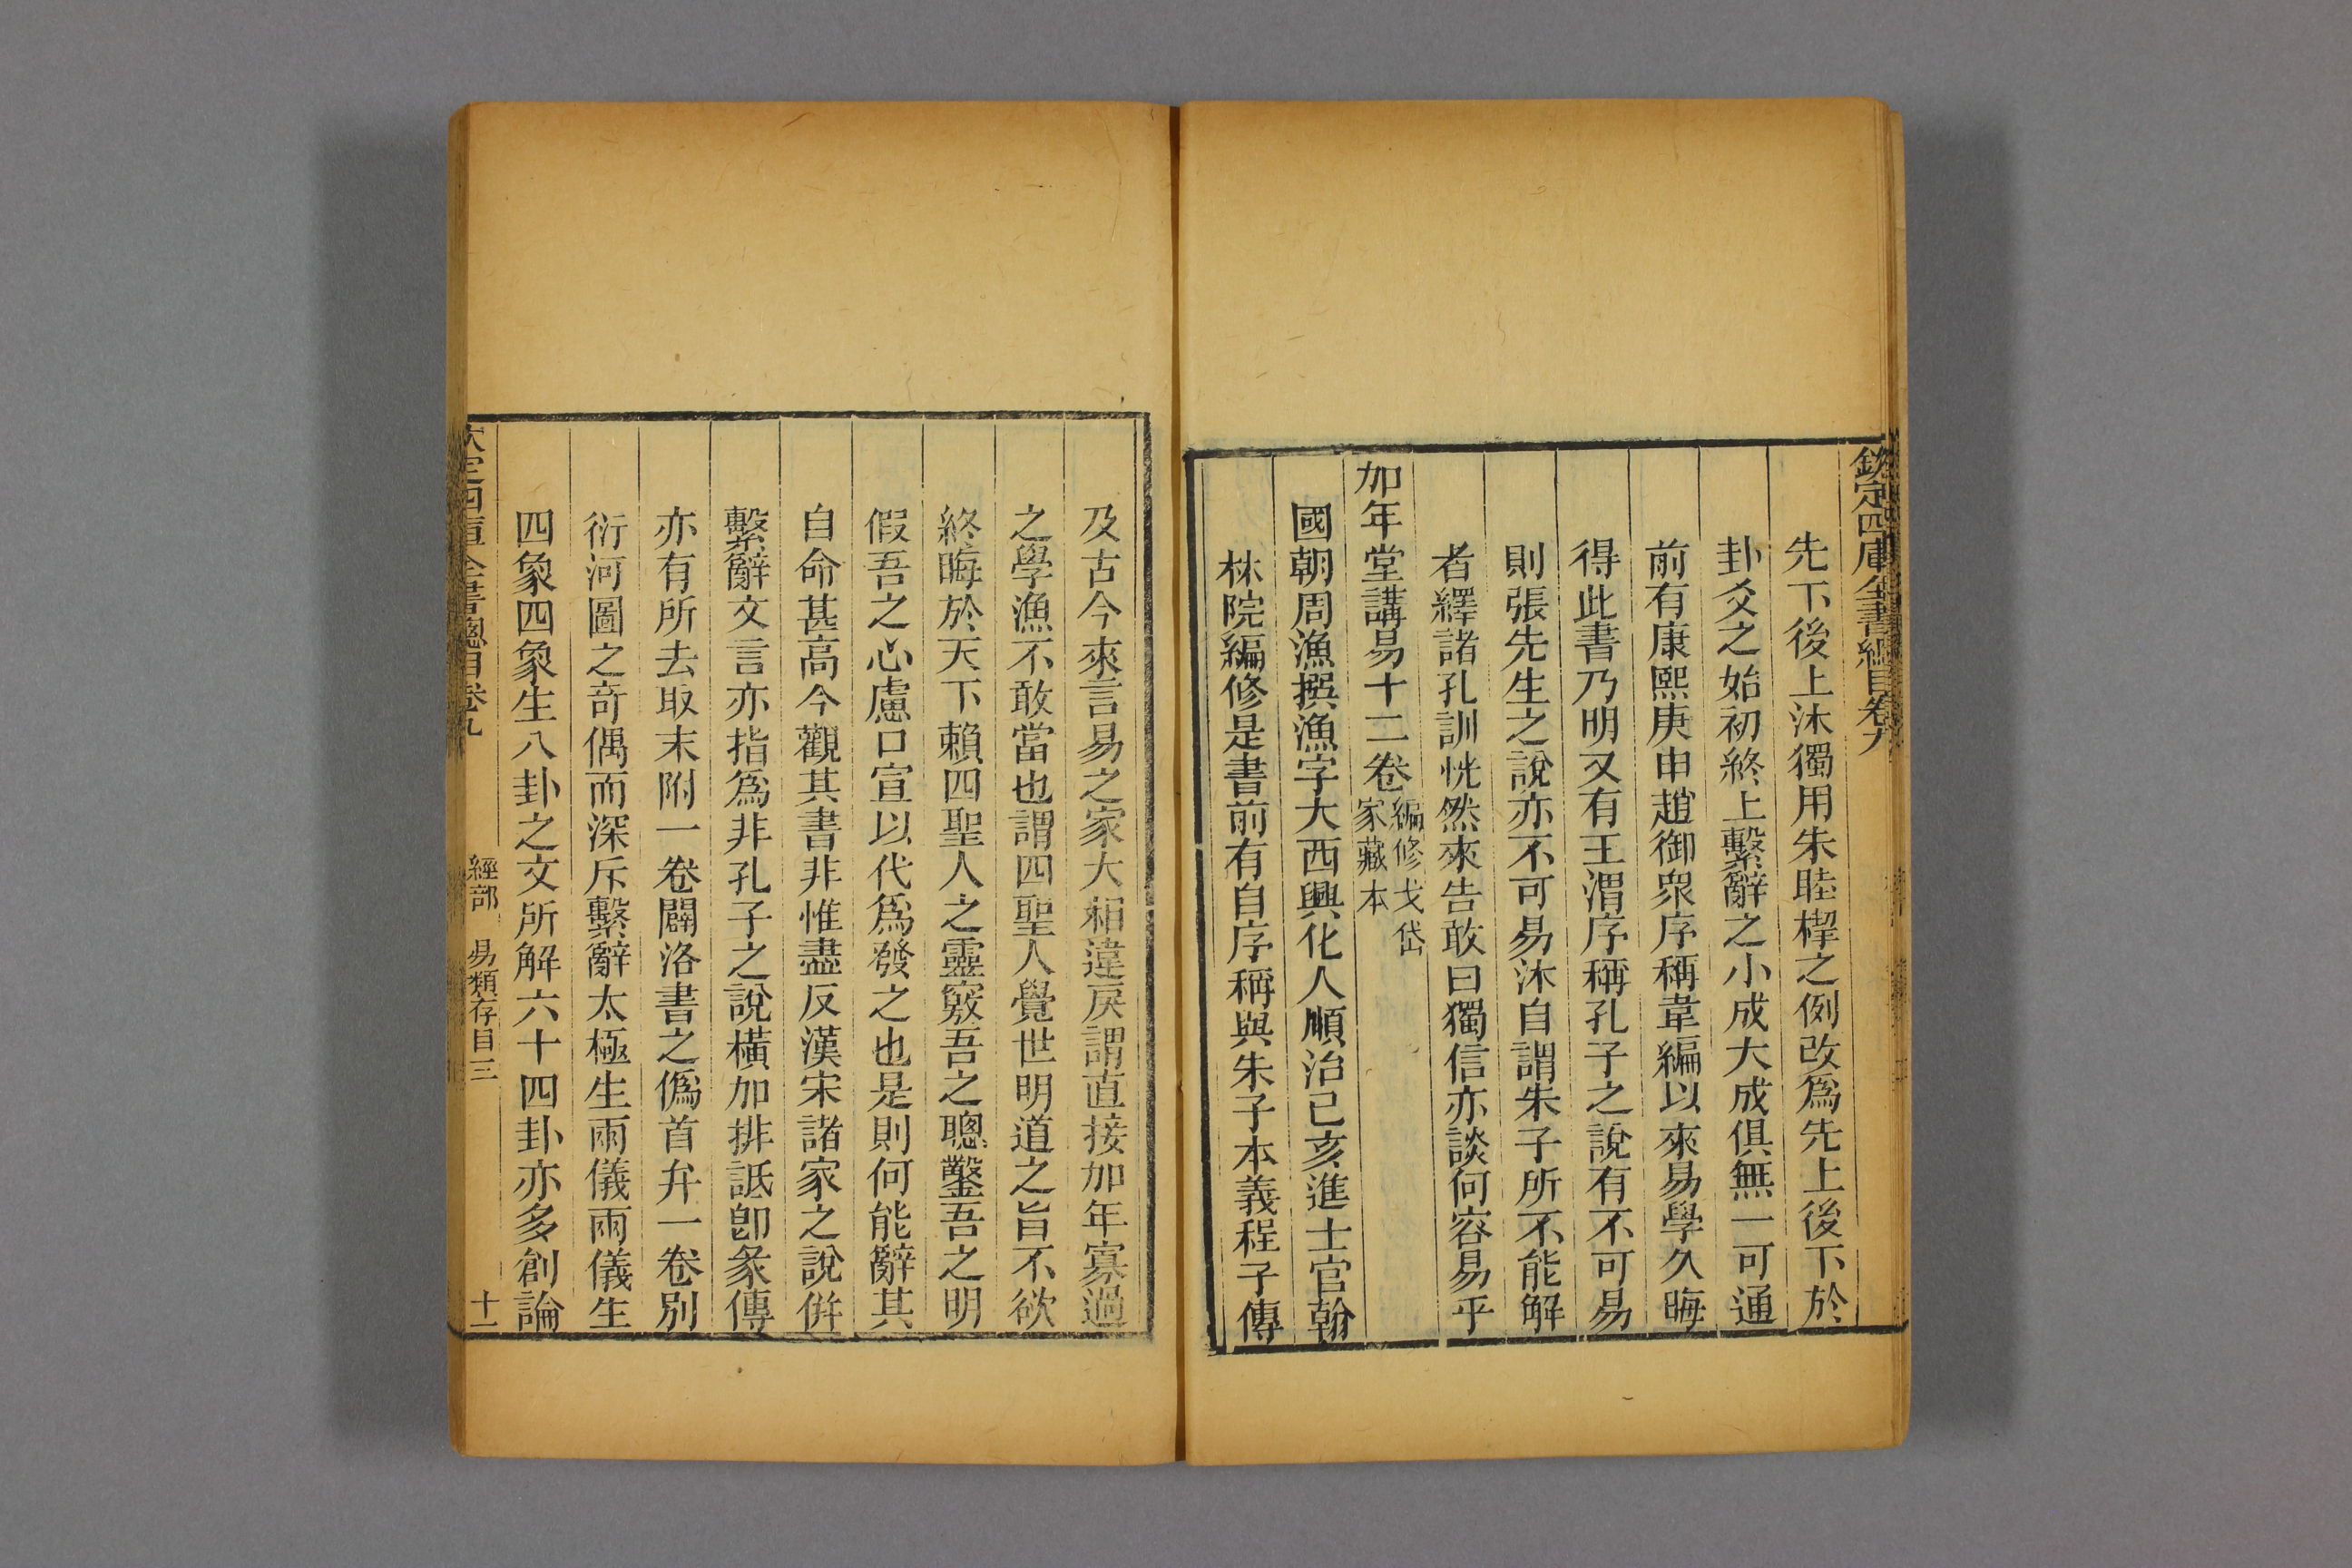 欽定四庫全書總目卷九
先下後上沐獨用朱睦㮮之例改爲先上後下於
卦爻之始初終上繫辭之小成大成俱無一可通
前有康熙庚申趙御衆序稱韋編以來易學久晦
得此書乃明又有王渭序稱孔子之說有不可易
則張先生之說亦不可易沐自謂朱子所不能解
者繹諸孔訓恍然來告敢曰獨信亦談何容易乎
加年堂講易十二卷編修戈岱家藏本
國朝周漁撰漁字大西興化人順治己亥進士官翰
林院編修是書前有自序稱與朱子本義程子傳
及古今來言易之家大相違戾謂直接加年寡過
之學漁不敢當也謂四聖人覺世明道之旨不欲
終晦於天下賴四聖人之靈竅吾之聰鑿吾之明
假吾之心慮口宣以代爲發之也是則何能辭其
自命甚高今觀其書非惟盡反漢宋諸家之說併
繫辭文言亦指爲非孔子之說橫加排詆卽彖傳
亦有所去取末附一卷闢洛書之僞首弁一卷別
衍河圖之奇偶而深斥繫辭太極生兩儀兩儀生
四象四象生八卦之文所解六十四卦亦多創論
欽定四庫全書總目卷九 經部 易類存目三 十一